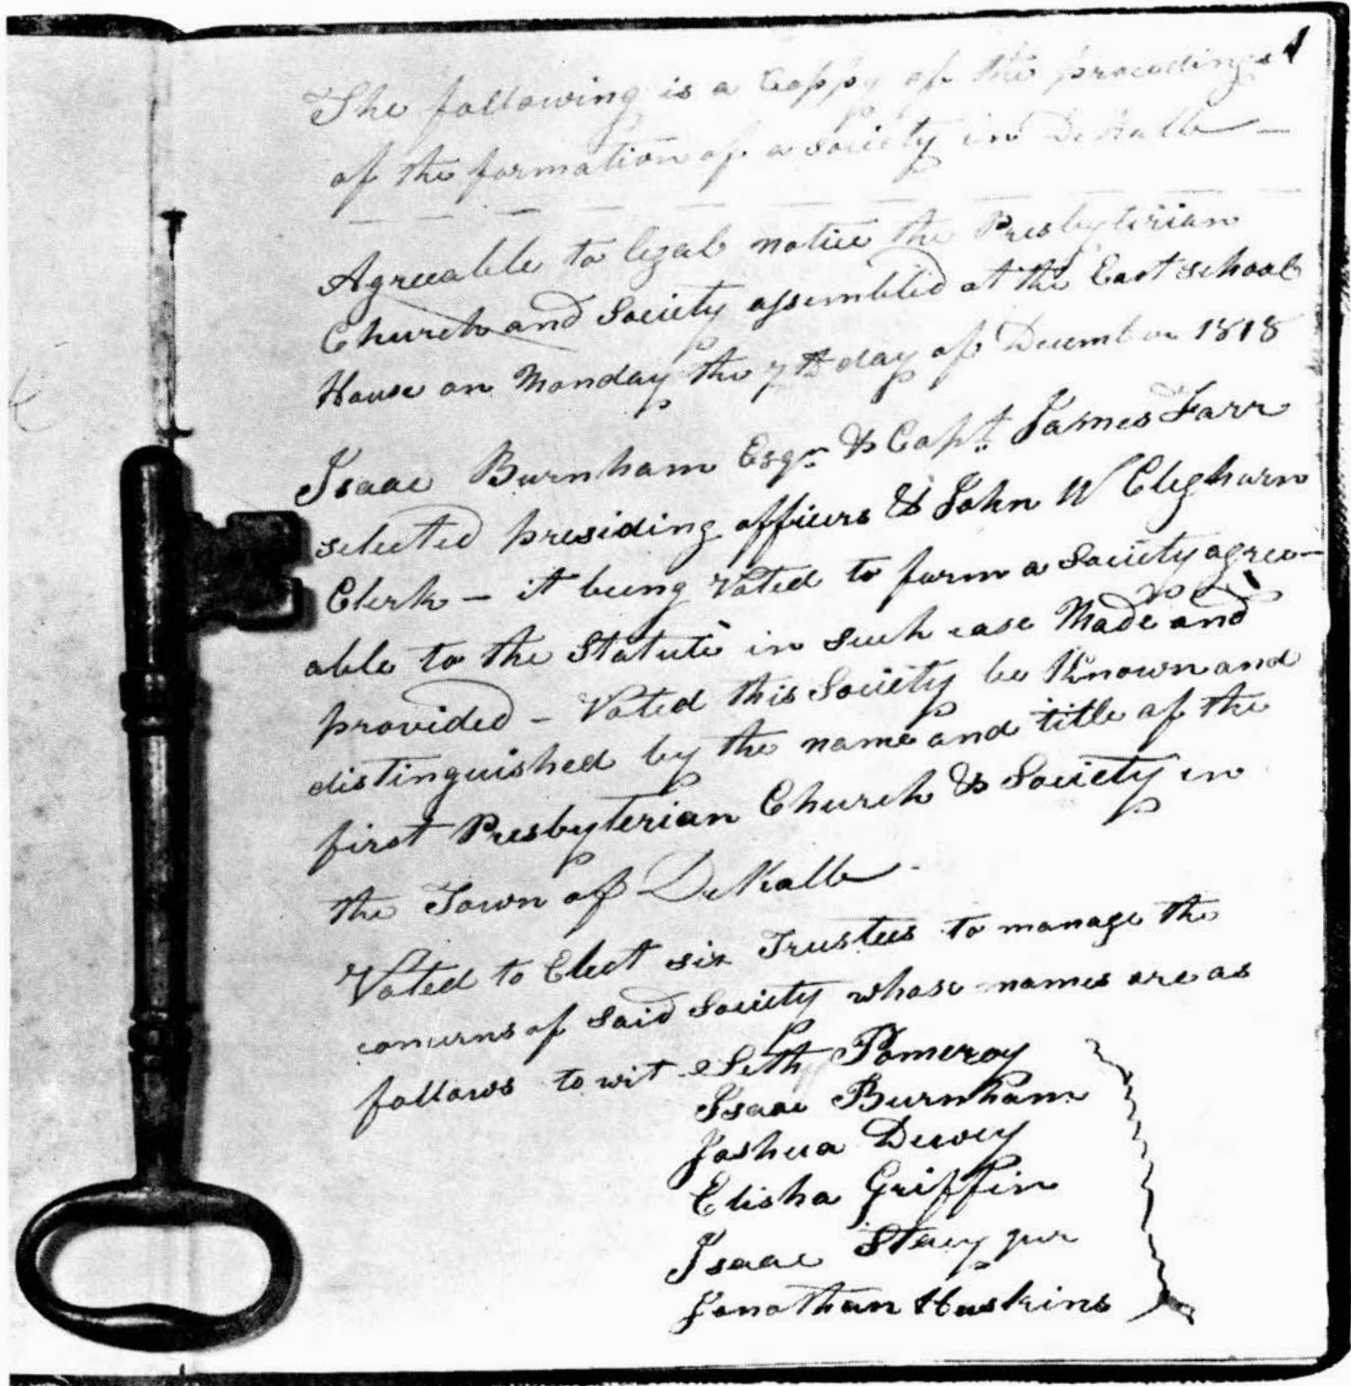 1
The following is a Coppy of the proceedings
of the formation of a Society in DeKalb —
Agreeable to legal notice the Presbyterian
Church and Society assembled at the East school
House on Monday the 7th day of December 1818
Isaac Burnham Esqr & Capt. James Farr
selected presiding officers & John W Cleghorn
Clerk — it being Voted to form a Society agree-
able to the Statute in such case Made and
provided — Voted this Society be Known and
distinguished by the name and title of the
first Presbyterian Church & Society in
the Town of DeKalb -
Voted to Elect six Trustees to manage the
concerns of said Society whose names are as
follows to wit - Seth Pomeroy
Isaac Burnham
Joshua Dewey
Elisha Griffin
Isaac Stacy jur
Jonathan Haskins